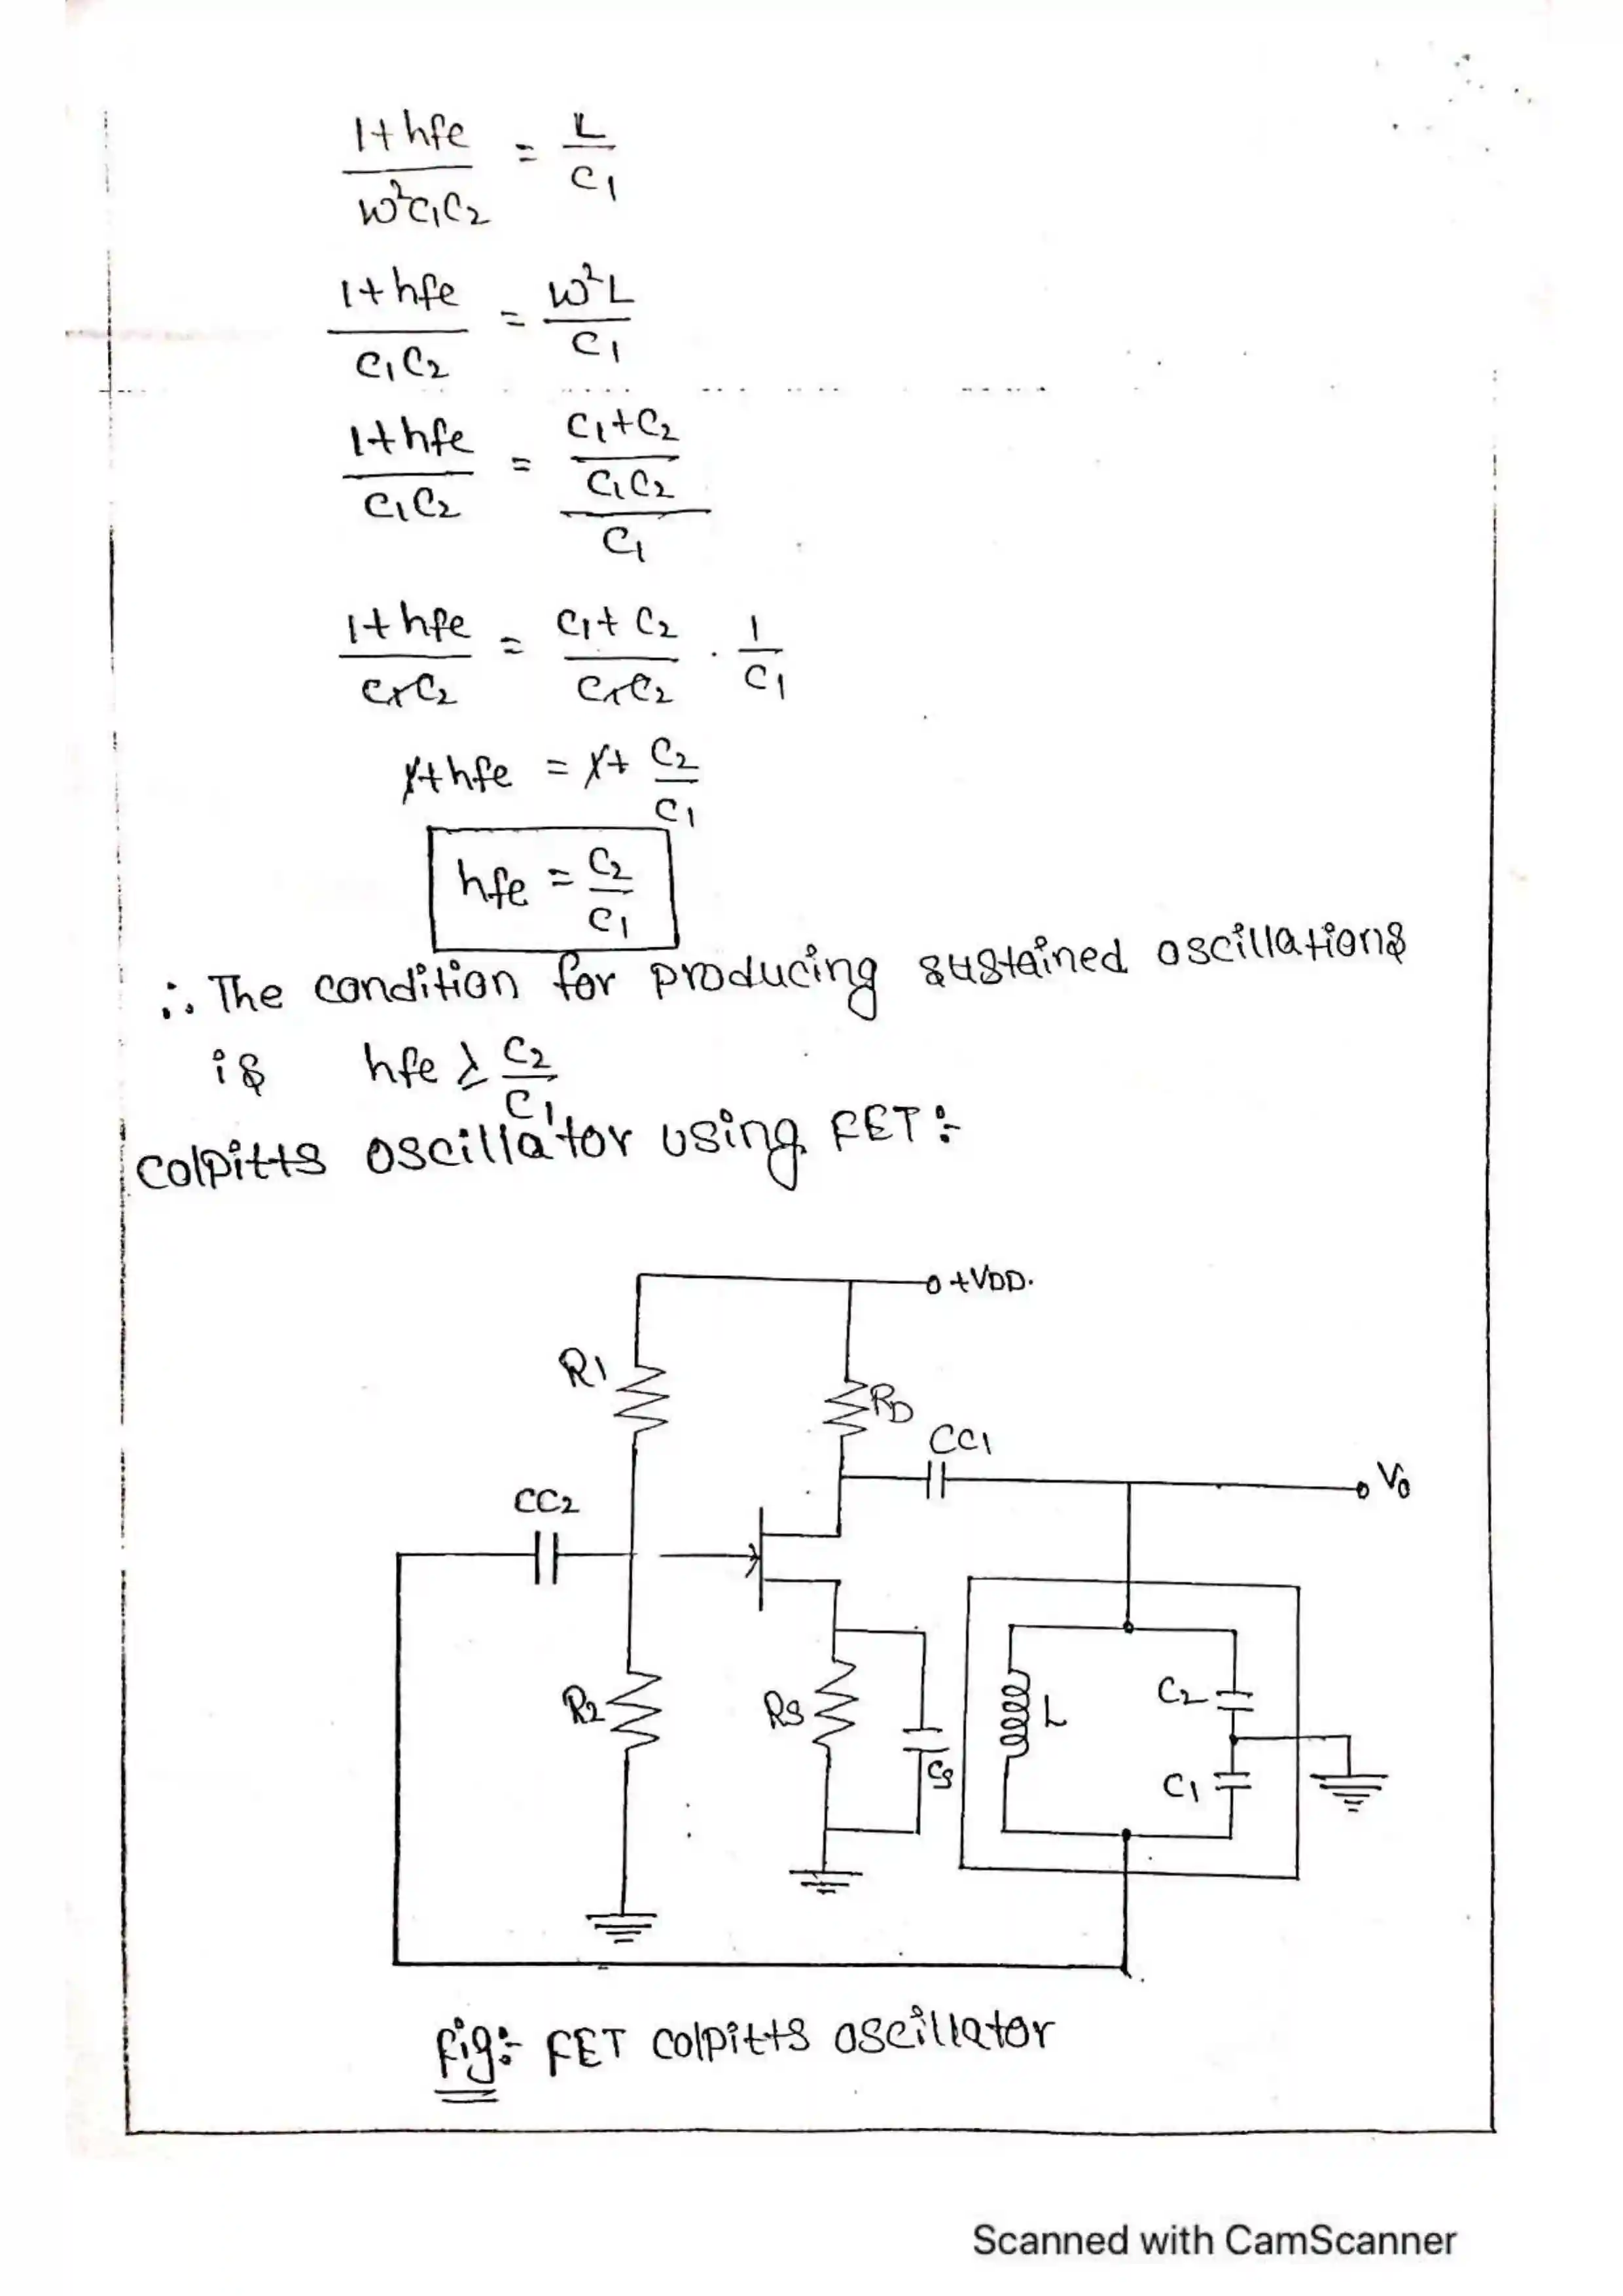 1+hfe / w²C1C2 = L / C1
1+hfe / C1C2 = w²L / C1
1+hfe / C1C2 = C1+C2 / C1C2 / C1
1+hfe / C1C2 = C1+C2 / C1C2 . 1 / C1
1+hfe = 1+ C2 / C1
hfe = C2 / C1
∴ The condition for producing sustained oscillations
is hfe ≥ C2 / C1
Colpitts oscillator using FET :-
+VDD.
R1
RD
CC1
Vo
CC2
C2
R2
RS
L
CS
C1
Fig:- FET Colpitts oscillator
Scanned with CamScanner